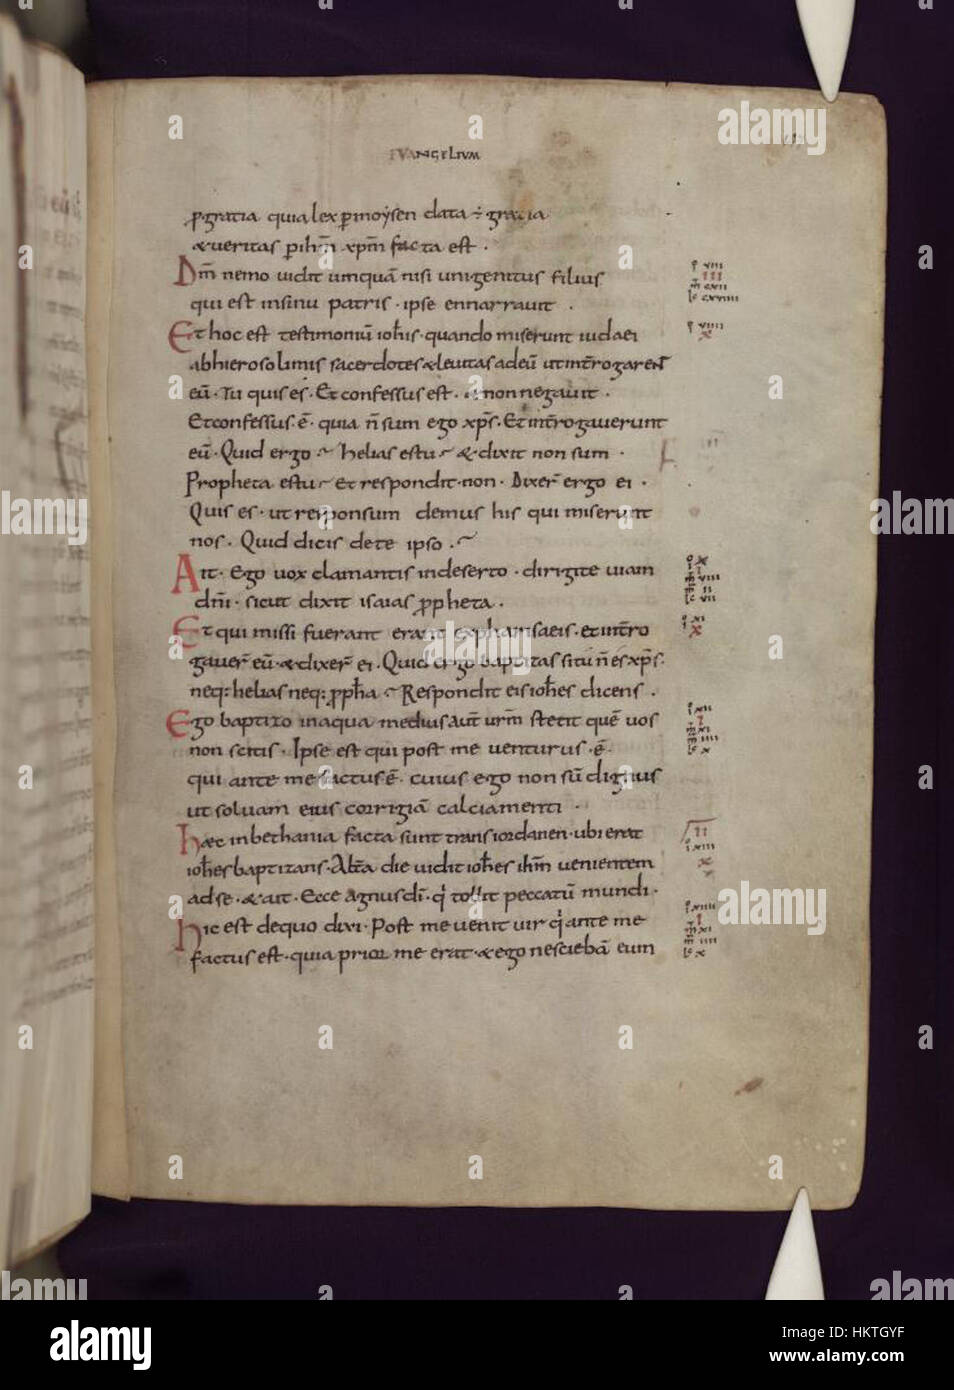 EVANGELIUM
p̱ gratia quia lex p̱ moysen data ÷ gratia
& veritas p̱ ihm̄ xpm̄ facta est .
Dm̄ nemo uidit umquā nisi unigenitus filius
qui est insinu patris . ipse ennarrauit .
Et hoc est testimoniū ioh̄is . quando miserunt iudaei
abhierosolimis sacerdotes & leuitas adeū ut int̄rogarent
eū . Tu quis es . Et confessus est . & non negauit .
Et confessus . ē . quia n̄ sum ego xp̄s . Et int̄rogauerunt
eū . Quid ergo helias es tu & dixit non sum .
Propheta es tu et respondit . non . Dixer̄ ergo ei .
Quis es . ut responsum demus his qui miserunt
nos . Quid dicis dete ipso .
Ait . Ego uox clamantis indeserto . dirigite uiam
dn̄i . sicut dixit isaias p̱pheta .
Et qui missi fuerant erant expharisaeis . et int̄ro
gauer̄ eū . & dixer̄ ei . Quid ergo baptitas situ n̄ es xp̄s .
neq: helias neq: p̱ph̄a Respondit eis ioh̄es dicens .
Ego baptizo inaqua medius aut̄ ur̄m stetit quē uos
non scitis . Ipse est qui post me uenturus . ē .
qui ante me factus ē . cuius ego non sū dignus
ut soluam eius corrigiā calciamenti .
Haec inbethania facta sunt trans iordanen . ubi erat
ioh̄es baptizans . Alt̄a die uidit ioh̄es ihm̄ uenientem
ad se . & ait . Ecce agnus dī . q̇ tollit peccatū mundi .
Hic est dequo dixi . Post me uenit uir q̇ ante me
factus est . quia prior me erat . & ego nesciebā eum
viii
iii
m̄ cxii
lc cxviiii
viiii
x
x
i
m̄ viii
m̄ ii
lc vii
xi
x
xii
i
m̄ xi
m̄ iiii
lc x
ii
xiii
x
xiiii
i
m̄ xi
m̄ iiii
lc x
alamy
a
alamy
Image ID: HKTGYF
www.alamy.com